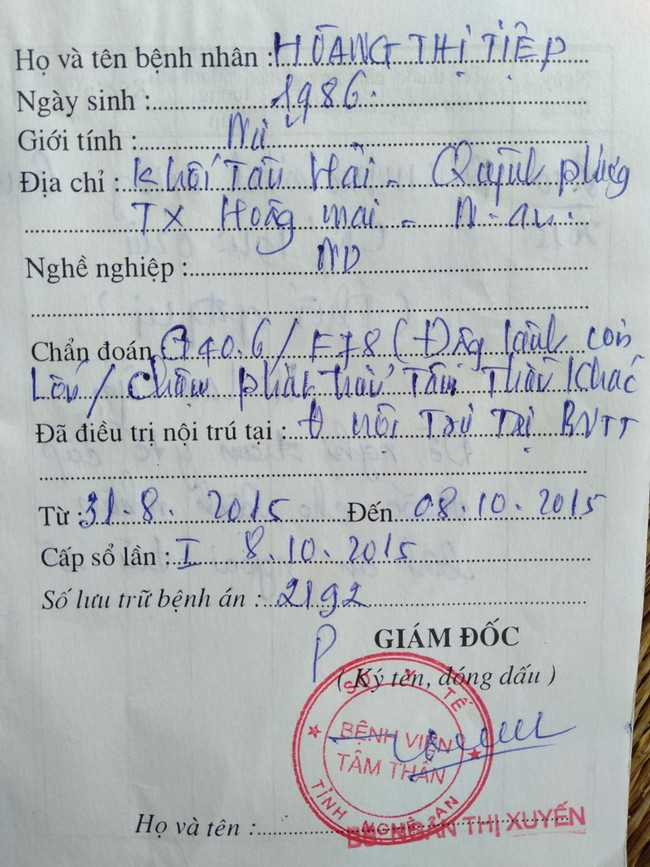 Họ và tên bệnh nhân : HOÀNG THỊ TIỆP
Ngày sinh : 1986.
Giới tính : Nữ
Địa chỉ : Khối Tân Hải - Quỳnh phương
TX Hoàng mai - N. an.
Nghề nghiệp :
Chẩn đoán G40.6 / F78 (Động kinh cơn
Lớn / Chậm phát triển Tâm Thần Khác
Đã điều trị nội trú tại : Đ nội Trú Tại BVTT
Từ : 31.8. 2015 Đến 08.10.2015
Cấp sổ lần : I 8.10.2015
Số lưu trữ bệnh án : 2192
P GIÁM ĐỐC
( Ký tên, đóng dấu )
SỞ Y TẾ
BỆNH VIỆN
TÂM THẦN
TỈNH NGHỆ AN
Họ và tên : THỊ XUYẾN